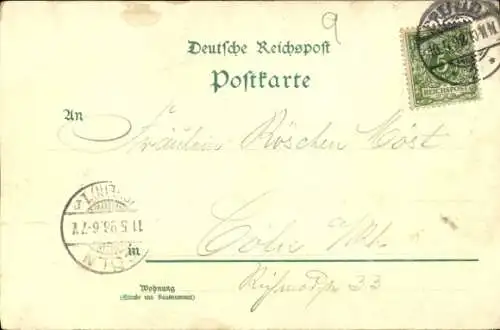 9
Deutsche Reichspost
Postkarte
REICHSPOST
An
Fräulein Röschen Möst
11.5.98.6-7 V.
in
Cöln a/Rh.
Wohnung
(Straße und Hausnummer)
33